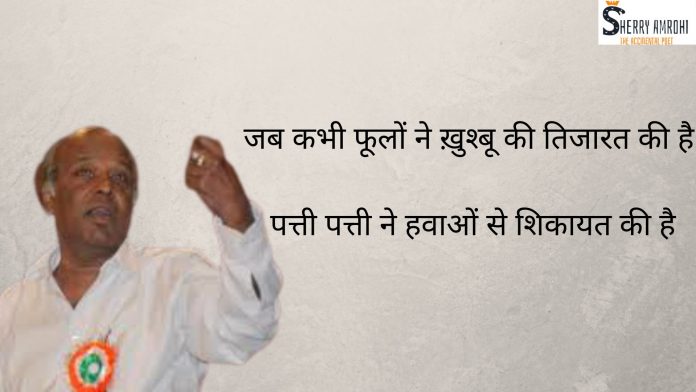 SHERRY AMROHI
THE ACCIDENTAL POET
जब कभी फूलों ने ख़ुश्बू की तिजारत की है
पत्ती पत्ती ने हवाओं से शिकायत की है